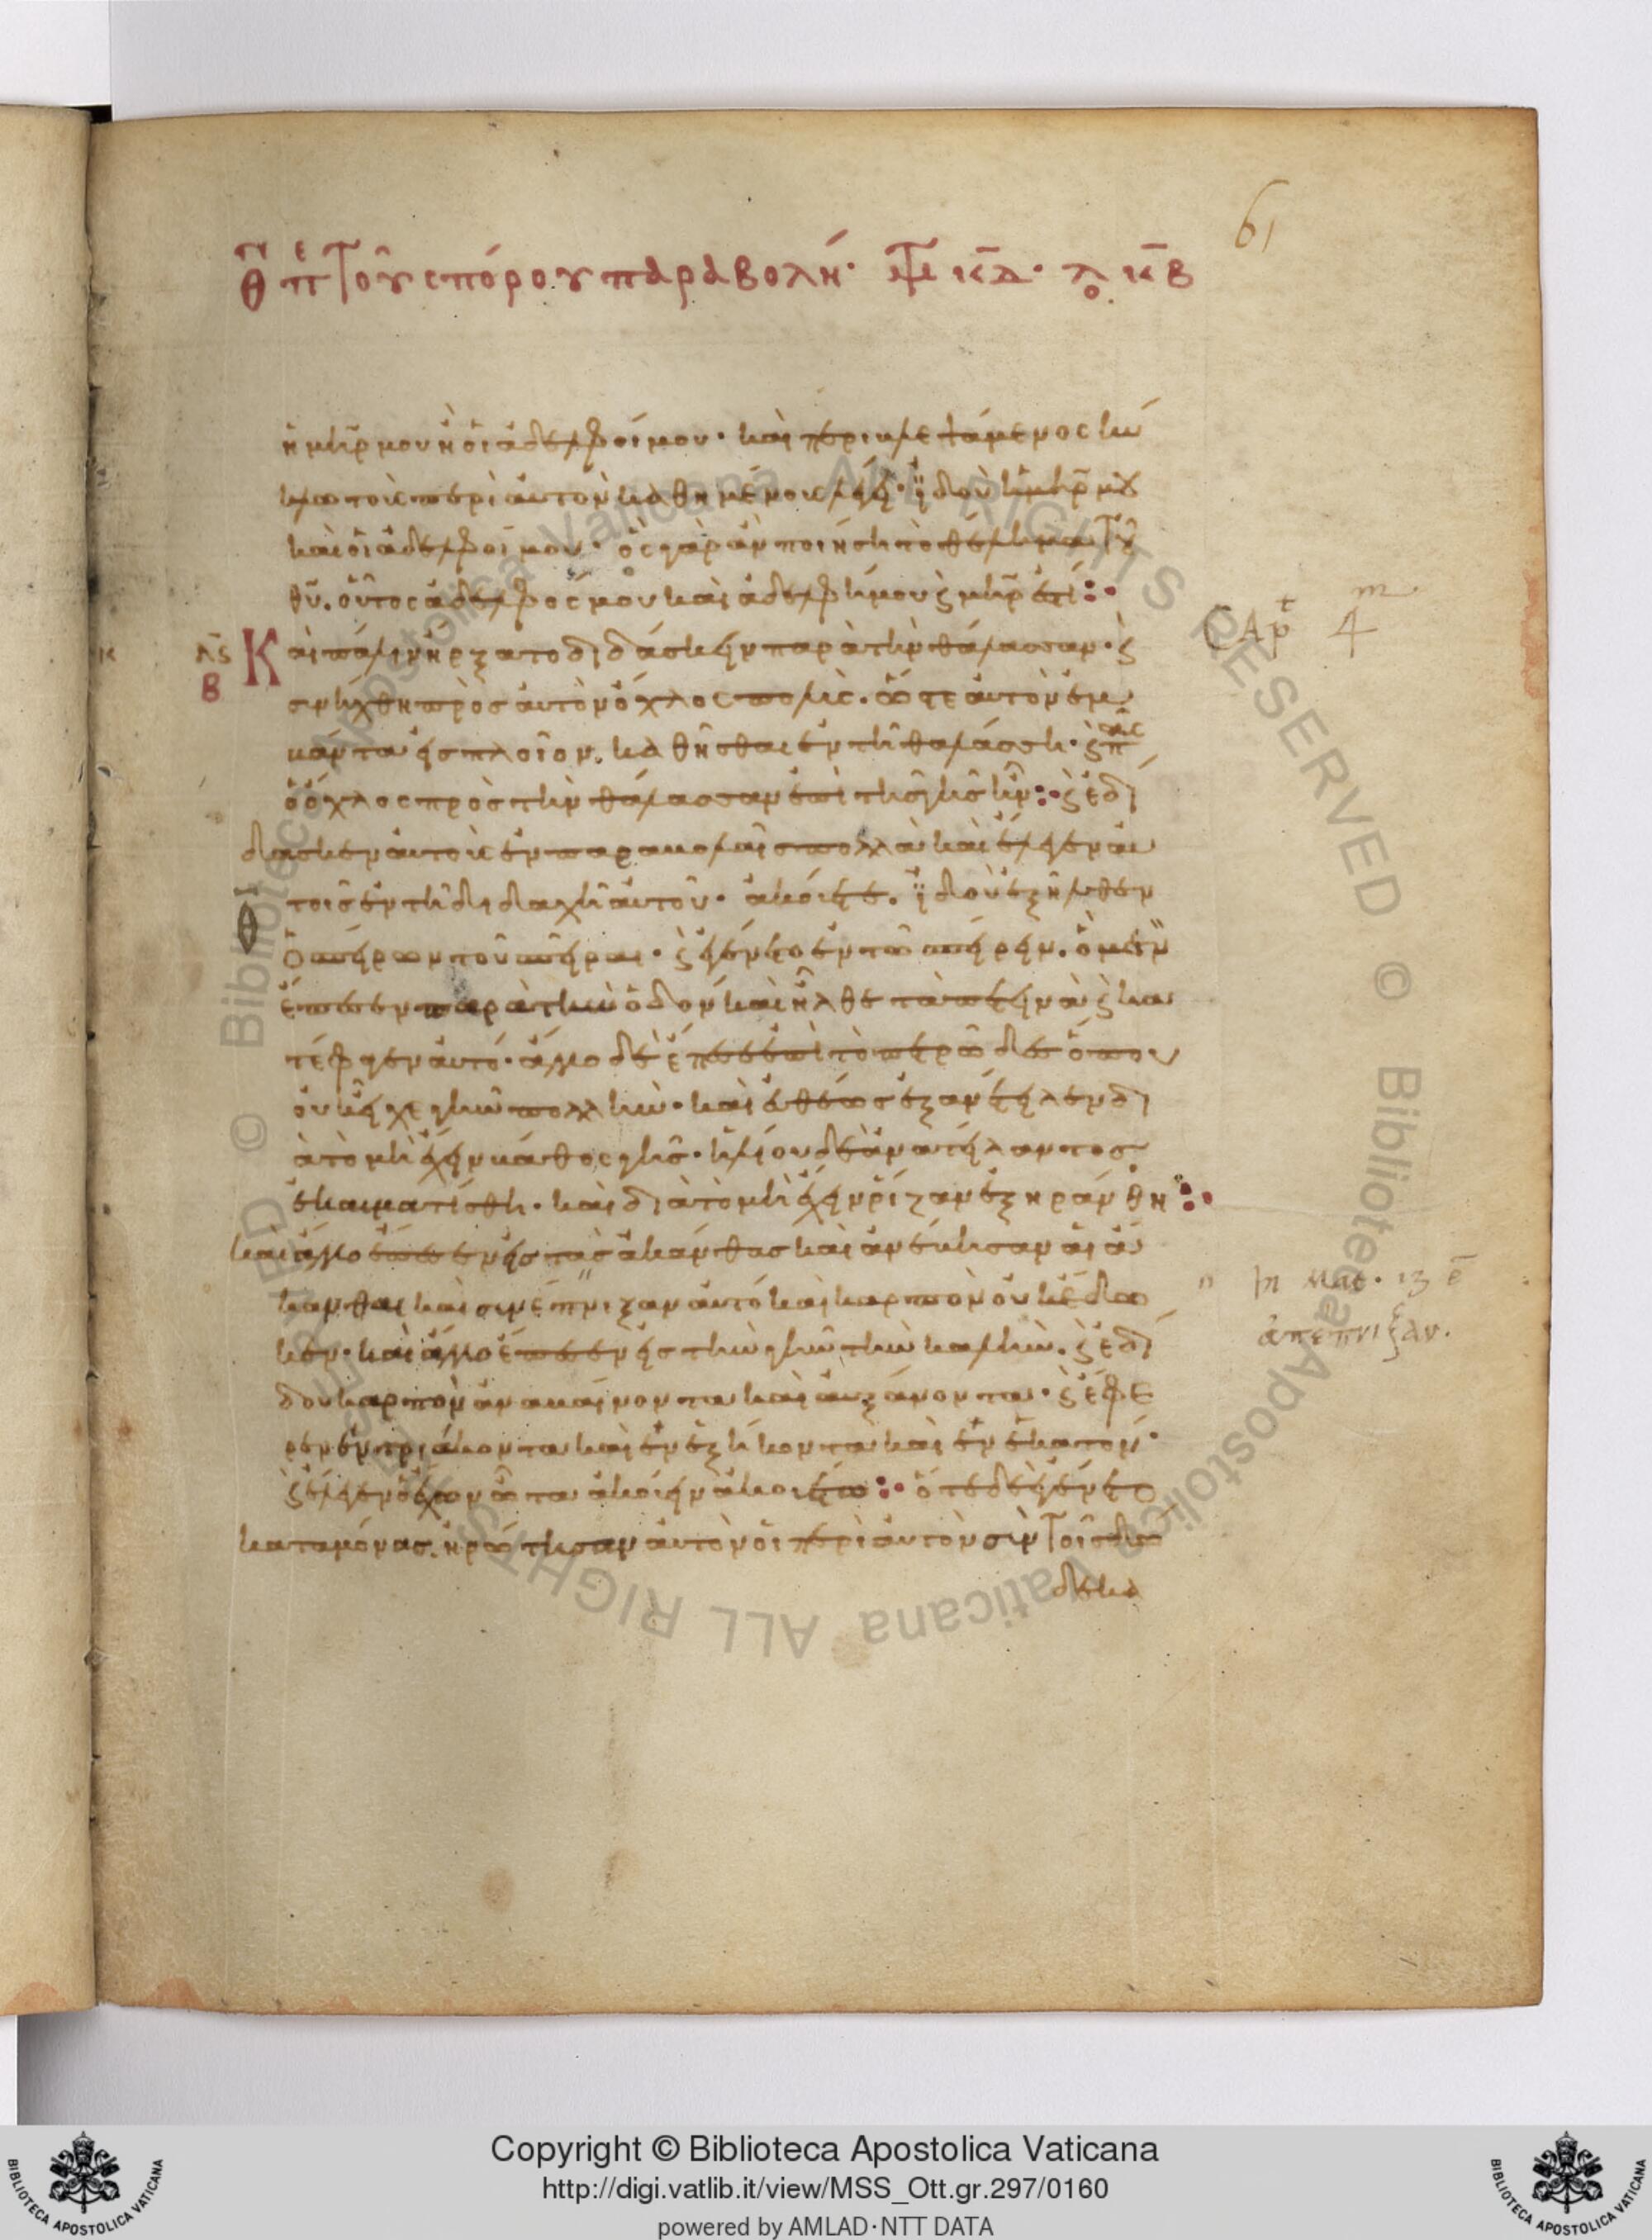 61
θ π Τοῦ σπόρου παραβολή· Μτ κδ· λο κβ
ἡ μηρ μου ἢ οἱ ἀδελφοί μου· καὶ περιβλεψάμενος κύ
κλω τοὺς περὶ αὐτὸν καθημένους λέγει· ἰδοὺ ἡ μηρ μου
καὶ οἱ ἀδελφοί μου· ὃς γὰρ ἂν ποιήση τὸ θέλημα τοῦ
θυ. οὗτος ἀδελφός μου καὶ ἀδελφή μου ϛ μηρ ἐστί:·
λϛ
β
Καὶ πάλιν ἤρξατο διδάσκειν παρὰ τὴν θάλασσαν· ϛ
συνήχθη πρὸς αὐτὸν ὄχλος πολὺς. ὥστε αὐτὸν ἐμ
βάντα εἰς πλοῖον. καθῆσθαι ἐν τῆ θαλάσση· ϛ πᾶς
ὁ ὄχλος πρὸς τὴν θάλασσαν ἐπὶ τῆς γῆς ἦν:· ϛ ἐδί
δασκεν αὐτοὺς ἐν παραβολαῖς πολλὰ καὶ ἔλεγεν αὐ
τοῖς ἐν τῆ διδαχῆ αὐτοῦ· ἀκούετε. ἰδοὺ ἐξῆλθεν
ὁ σπείρων τοῦ σπεῖραι· ϛ ἐγένετο ἐν τῶ σπείρειν. ὃ μὲν
ἔπεσεν παρὰ τὴν ὁδὸν καὶ ἦλθε τὰ πετεινὰ ϛ κα
τέφαγεν αὐτό· ἄλλο δὲ ἔπεσε ἐπὶ τὸ πετρῶδες ὅπου
οὐκ εἶχε γῆν πολλὴν· καὶ εὐθέως ἐξανέτειλεν δι
ὰ τὸ μὴ ἔχειν βάθος γῆς· ἡλίου δὲ ἀνατείλαντος
ἐκαυματίσθη· καὶ διὰ τὸ μὴ ἔχειν ῥίζαν ἐξηράνθη:·
καὶ ἄλλο ἔπεσεν εἰς τὰς ἀκάνθας καὶ ἀνέβησαν αἱ ἄ
κανθαι καὶ συνέπνιξαν αὐτό καὶ καρπὸν οὐκ ἔδω
κεν· καὶ ἄλλο ἔπεσεν εἰς τὴν γῆν τὴν καλὴν. ϛ ἐδί
δου καρπὸν ἀναβαίνοντα καὶ αὐξάνοντα· ϛ ἔφε
ρεν ἓν τριάκοντα καὶ ἓν ἑξήκοντα καὶ ἓν ἑκατόν·
ϛ ἔλεγεν ὁ ἔχων ὦτα ἀκούειν ἀκουέτω:· ὅτε δὲ ἐγένετο
καταμόνας. ἠρώτησαν αὐτὸν οἱ περὶ αὐτὸν σὺν τοῖς δώ
δεκα
CApt 4m
In Mat. 13 ē
ἀπεπνιξαν.
Copyright © Biblioteca Apostolica Vaticana
http://digi.vatlib.it/view/MSS_Ott.gr.297/0160
powered by AMLAD·NTT DATA
BIBLIOTECA APOSTOLICA VATICANA
BIBLIOTECA APOSTOLICA VATICANA
© Biblioteca Apostolica Vaticana ALL RIGHTS RESERVED © Biblioteca Apostolica Vaticana ALL RIGHTS RESERVED